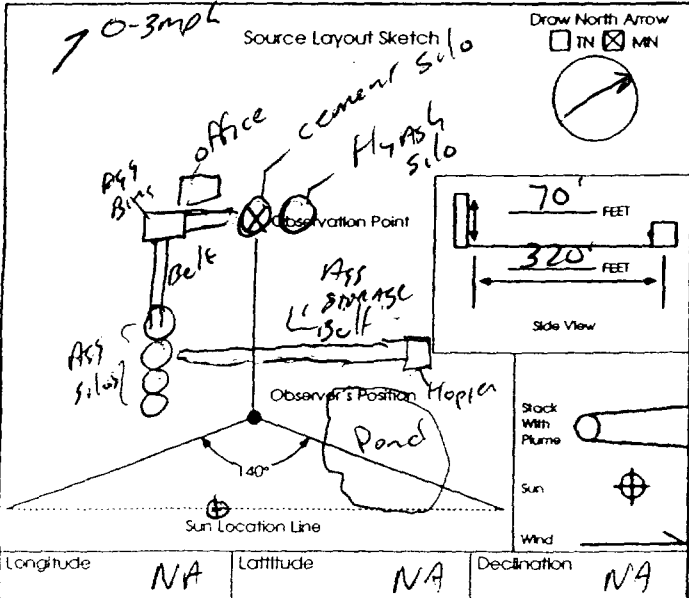 0-3mph
Source Layout Sketch
Draw North Arrow
TN MN
Office
Cement Silo
Fly Ash
Silo
Agg
Bins
Observation Point
70'
FEET
320'
FEET
Side View
Belt
Agg
Storage
Belt
Agg
Silos
Hopper
Observer's Position
Pond
140°
Sun Location Line
Stack
With
Plume
Sun
Wind
Longitude NA
Lattitude NA
Declination NA